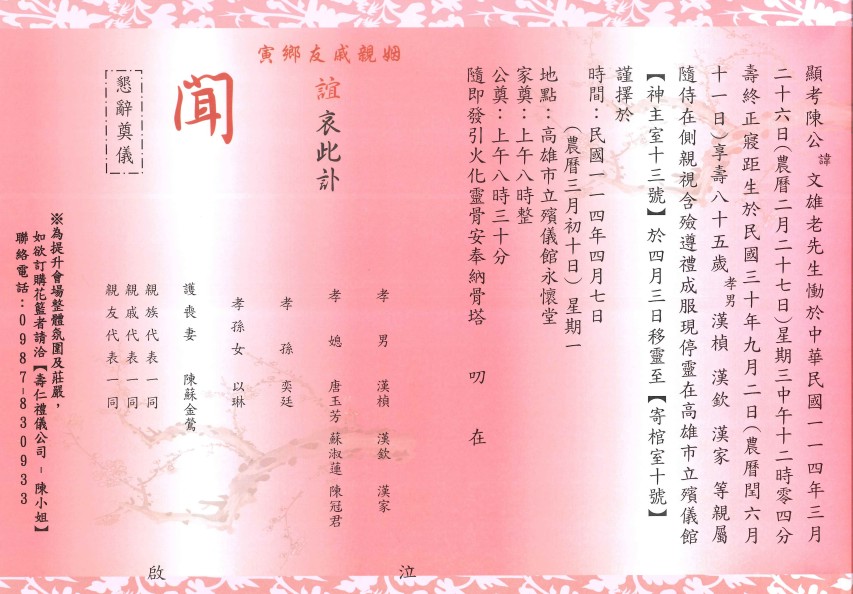 顯考陳公諱文雄老先生慟於中華民國一一四年三月
二十六日(農曆二月二十七日)星期三中午十二時零四分
壽終正寢距生於民國三十年九月二日(農曆閏六月
十一日)享壽八十五歲孝男漢楨 漢欽 漢家 等親屬
隨侍在側親視含殮遵禮成服現停靈在高雄市立殯儀館
【神主室十三號】於四月三日移靈至【寄棺室十號】
謹擇於
時間：民國一一四年四月七日
(農曆三月初十日)星期一
地點：高雄市立殯儀館永懷堂
家奠：上午八時整
公奠：上午八時三十分
隨即發引火化靈骨安奉納骨塔 叨 在
姻親戚友鄉寅
誼哀此訃
聞
懇辭奠儀
孝 男 漢楨 漢欽 漢家
孝 媳 唐玉芳 蘇淑蓮 陳冠君
孝 孫 奕廷
孝孫女 以琳
護喪妻 陳蘇金鶯
親族代表一同
親戚代表一同
親友代表一同
泣
啟
※為提升會場整體氛圍及莊嚴，
如欲訂購花籃者請洽【壽仁禮儀公司 - 陳小姐】
聯絡電話：0987-830933